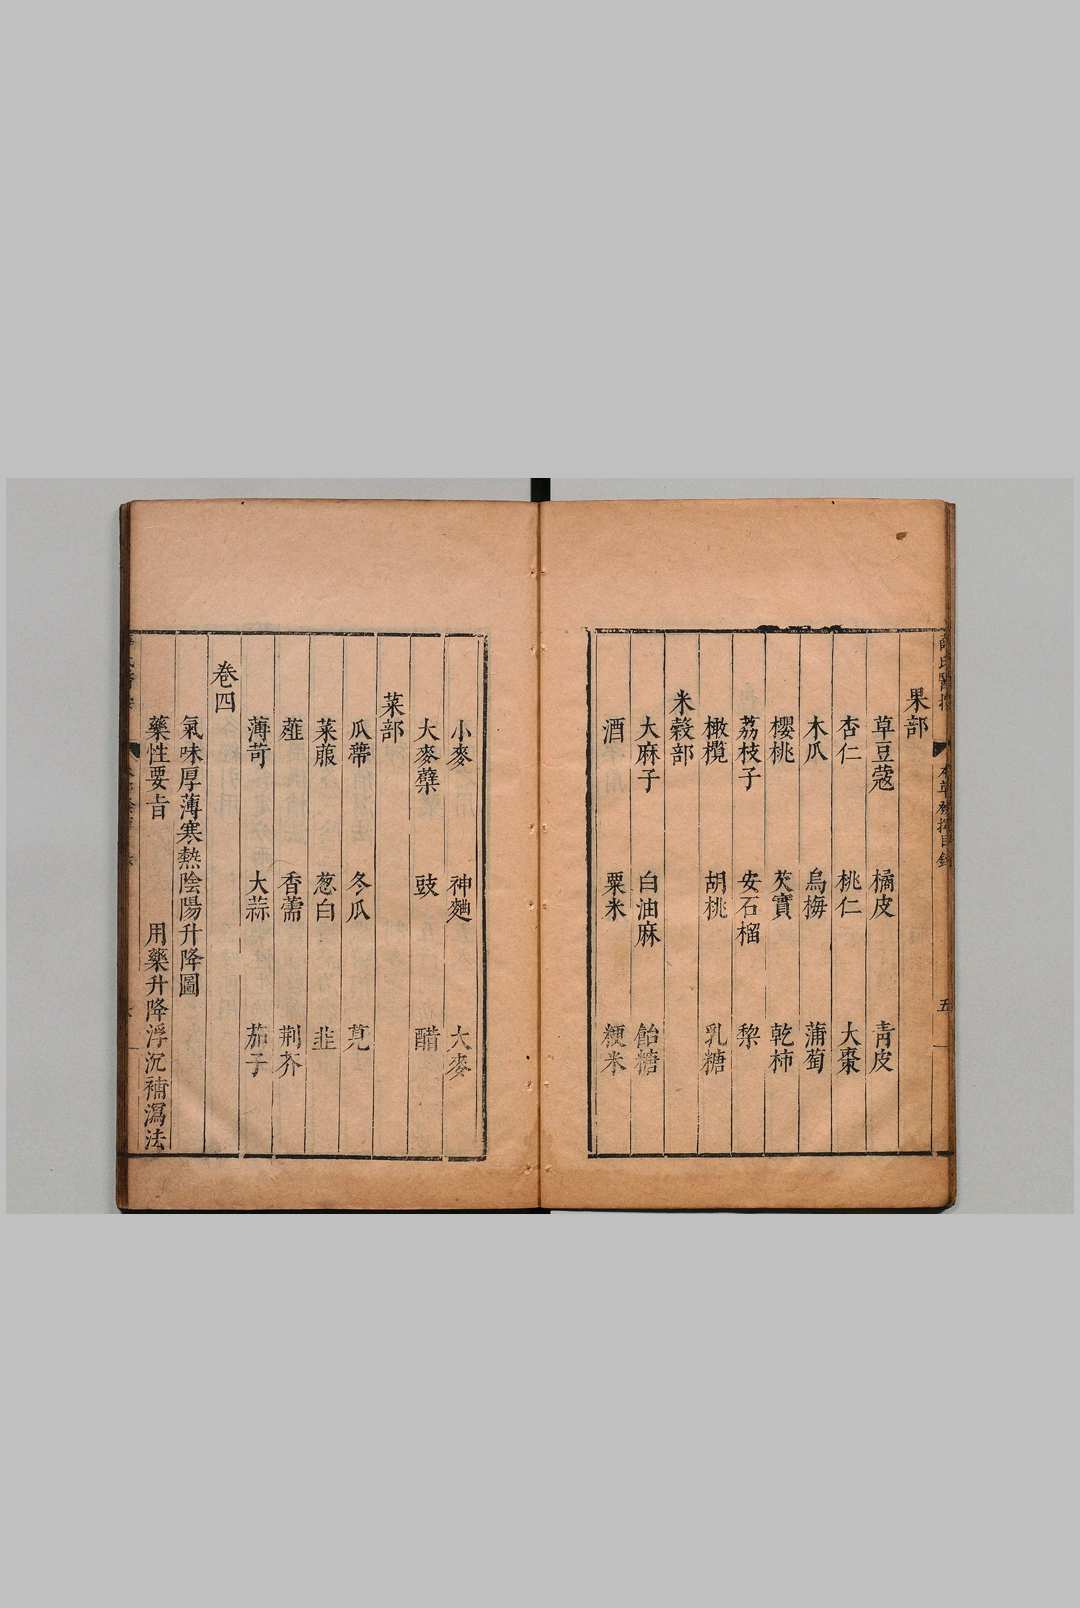 果部
草豆蔻 橘皮 青皮
杏仁 桃仁 大棗
木瓜 烏梅 蒲萄
櫻桃 芡實 乾柿
荔枝子 安石榴 棃
橄欖 胡桃 乳糖
米穀部
大麻子 白油麻 飴糖
酒 粟米 粳米
五
小麥 神麯 大麥
大麥蘖 豉 醋
菜部
瓜蔕 冬瓜 莧
萊菔 葱白 韭
薤 香薷 荆芥
薄苛 大蒜 茄子
卷四
氣味厚薄寒熱陰陽升降圖
藥性要旨 用藥升降浮沉補瀉法